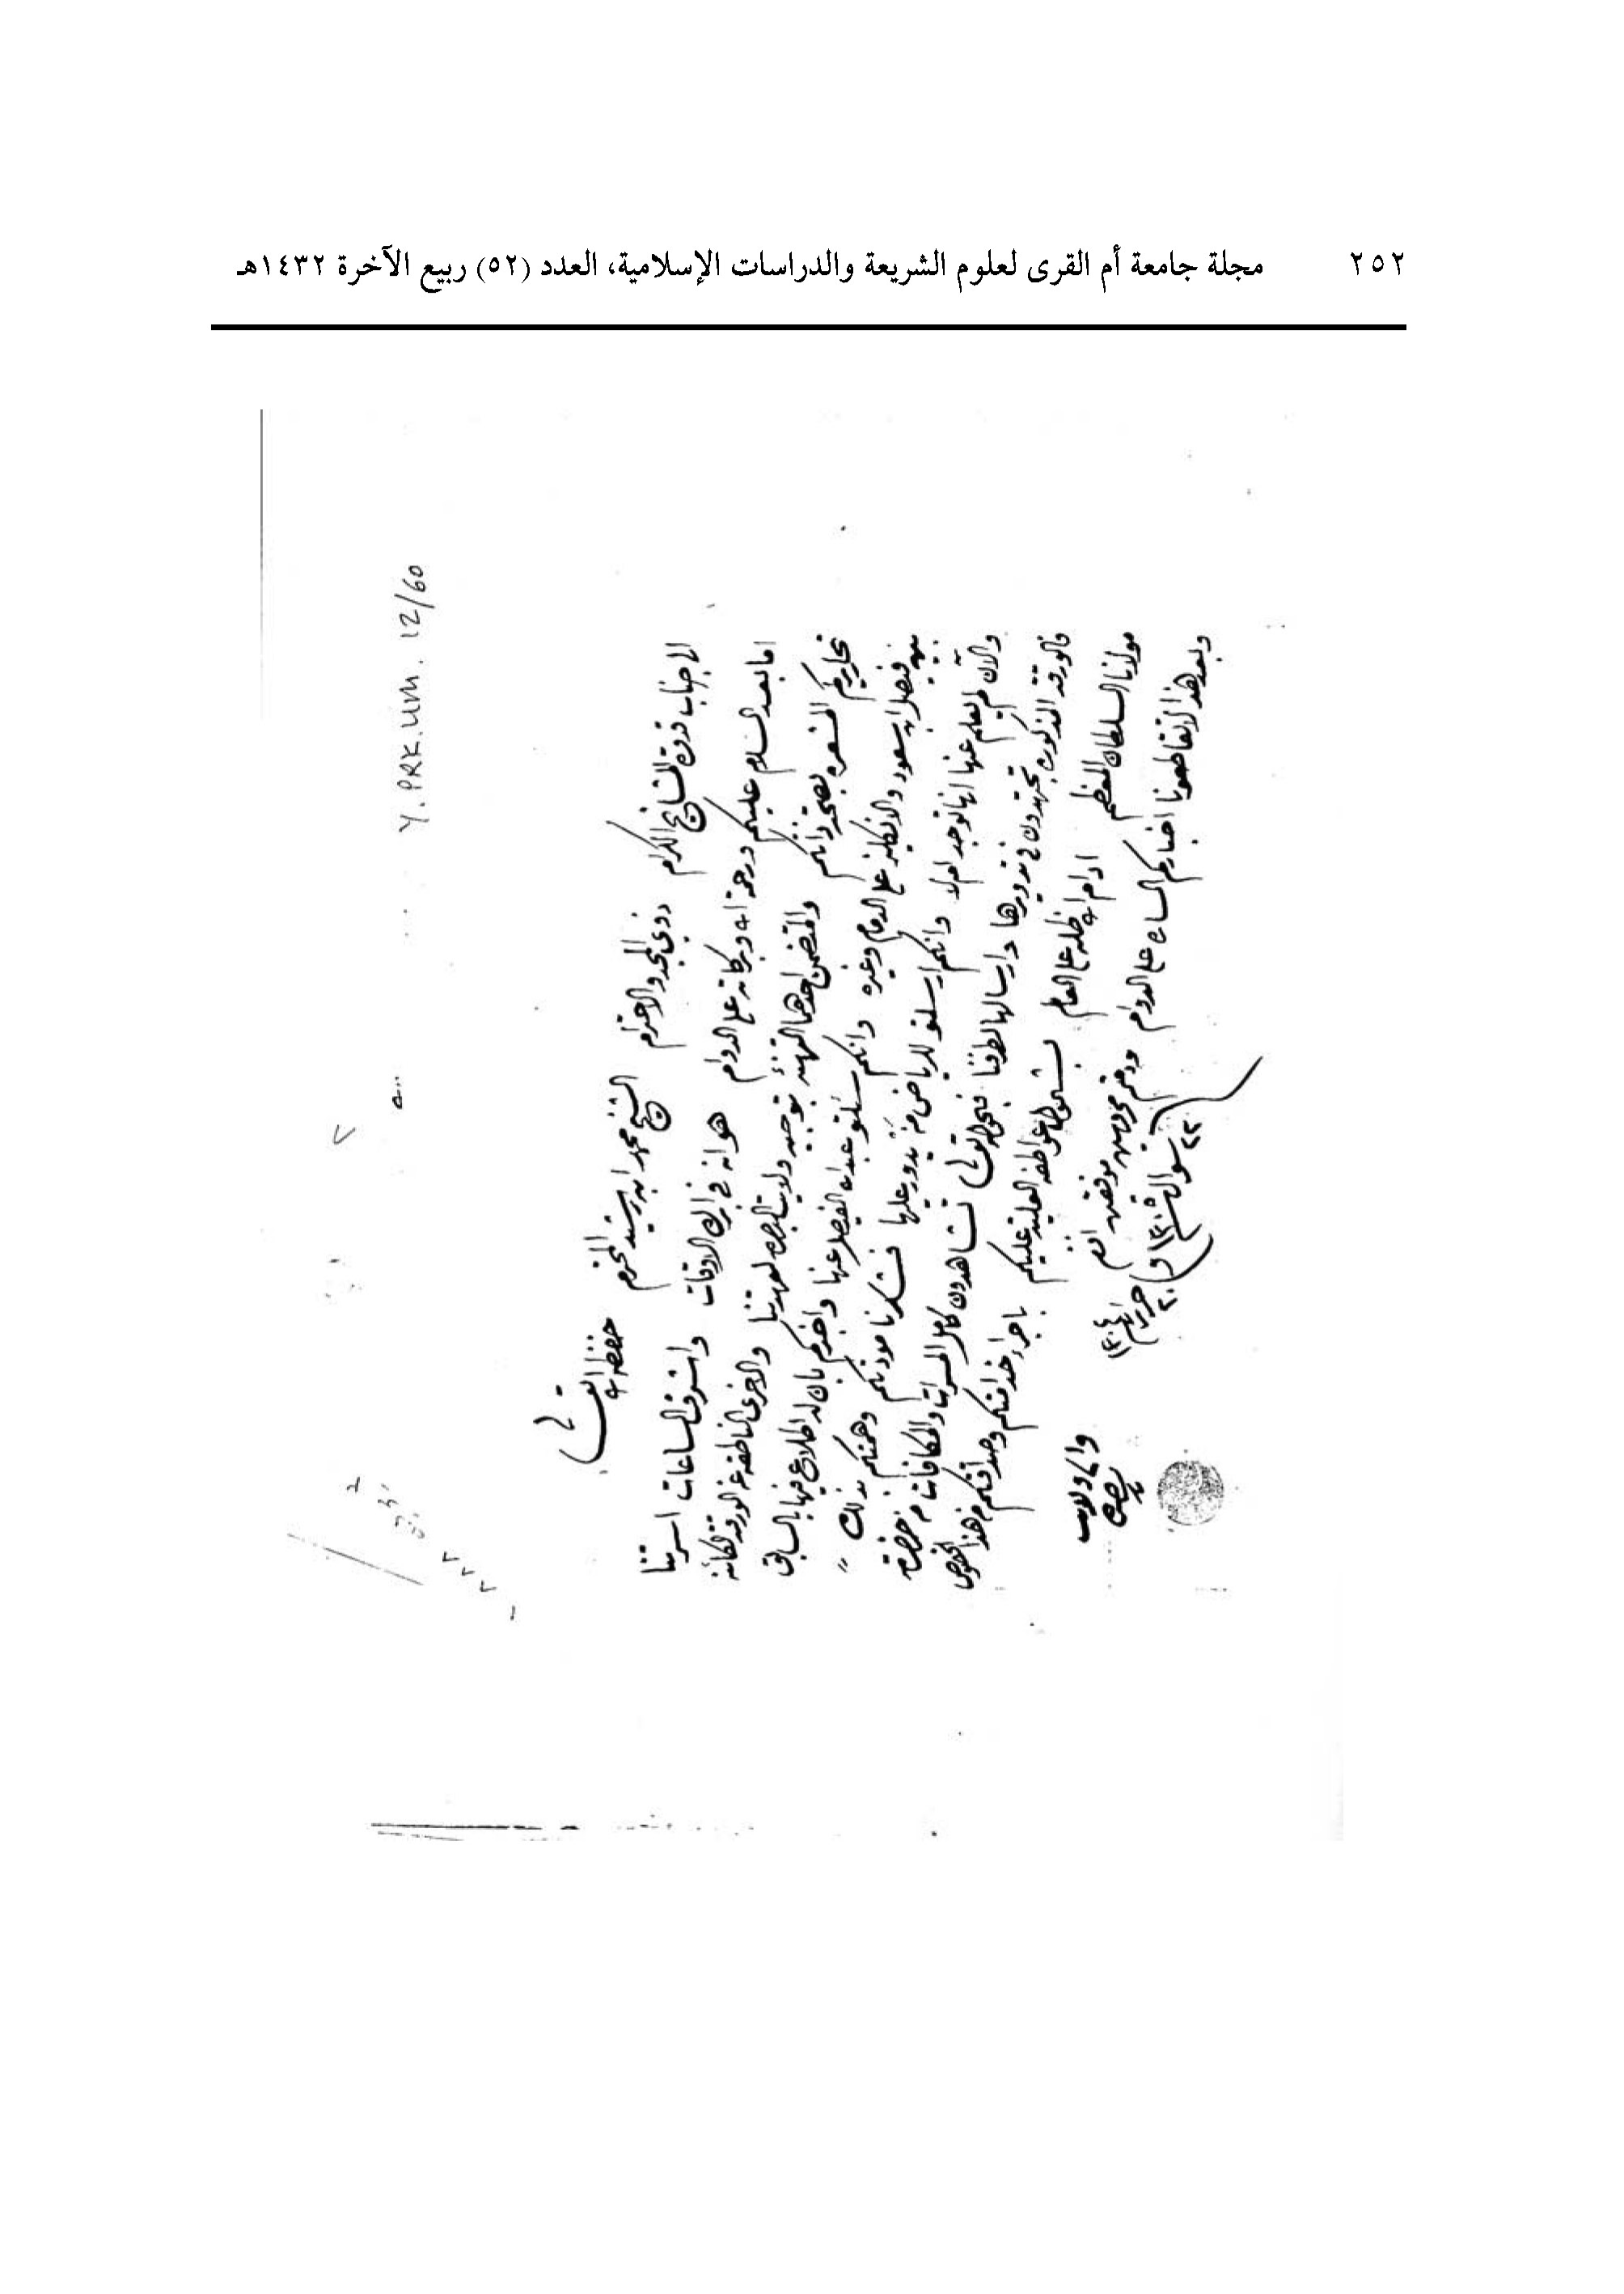 ٢٥٢ مجلة جامعة أم القرى لعلوم الشريعة والدراسات الإسلامية، العدد (٥٢) ربيع الآخرة ١٤٣٢هـ
Y. PRK. UM. 12/60
الى جناب قدوة المشايخ الكرام ذوي المجد والاحترام الشيخ محمد ابن رشيد المحترم حفظه الله تعالى
اما بعد السلام عليكم ورحمة الله وبركاته على الدوام هو انه في ابرك الاوقات واشرف الساعات اسرتنا
تحاريركم المشعره بصحة ذاتكم والمتضمن احدهما التهنئة بتوجيه ولاية البصره لعهدتنا والاخرى الناطقه عن الورقة الكائنه
بين فيصل ابن سعود والانكليز على الدمام وغيره وانكم سئلتو عبدالله الفيصل عنها واخبركم بان له اطلاع فيها بالسابق
والآن لم يعلم عنها انها توجد ام لا وانكم ارسلتو للرياض من يدور عليها فشكرنا مودتكم وهمتكم بذلك
فالورقة المذكوره تجتهدون في تدويرها وارسالها لطرفنا فبحوله تعالى تشاهدون كامل المسرات والمكافات من حضرة
مولانا السلطان المعظم ادام الله ظله على العالم بشمول عواطفه العليه عليكم باجراء خدامتكم وصداقتكم من هذا الخصوص
وبعد هذا لا تقاطعونا اخباركم الساره على الدوام ودمتم محروسين موفقين
والي ولايت
بصره
٢٢ شوال سنة ١٣٠٤